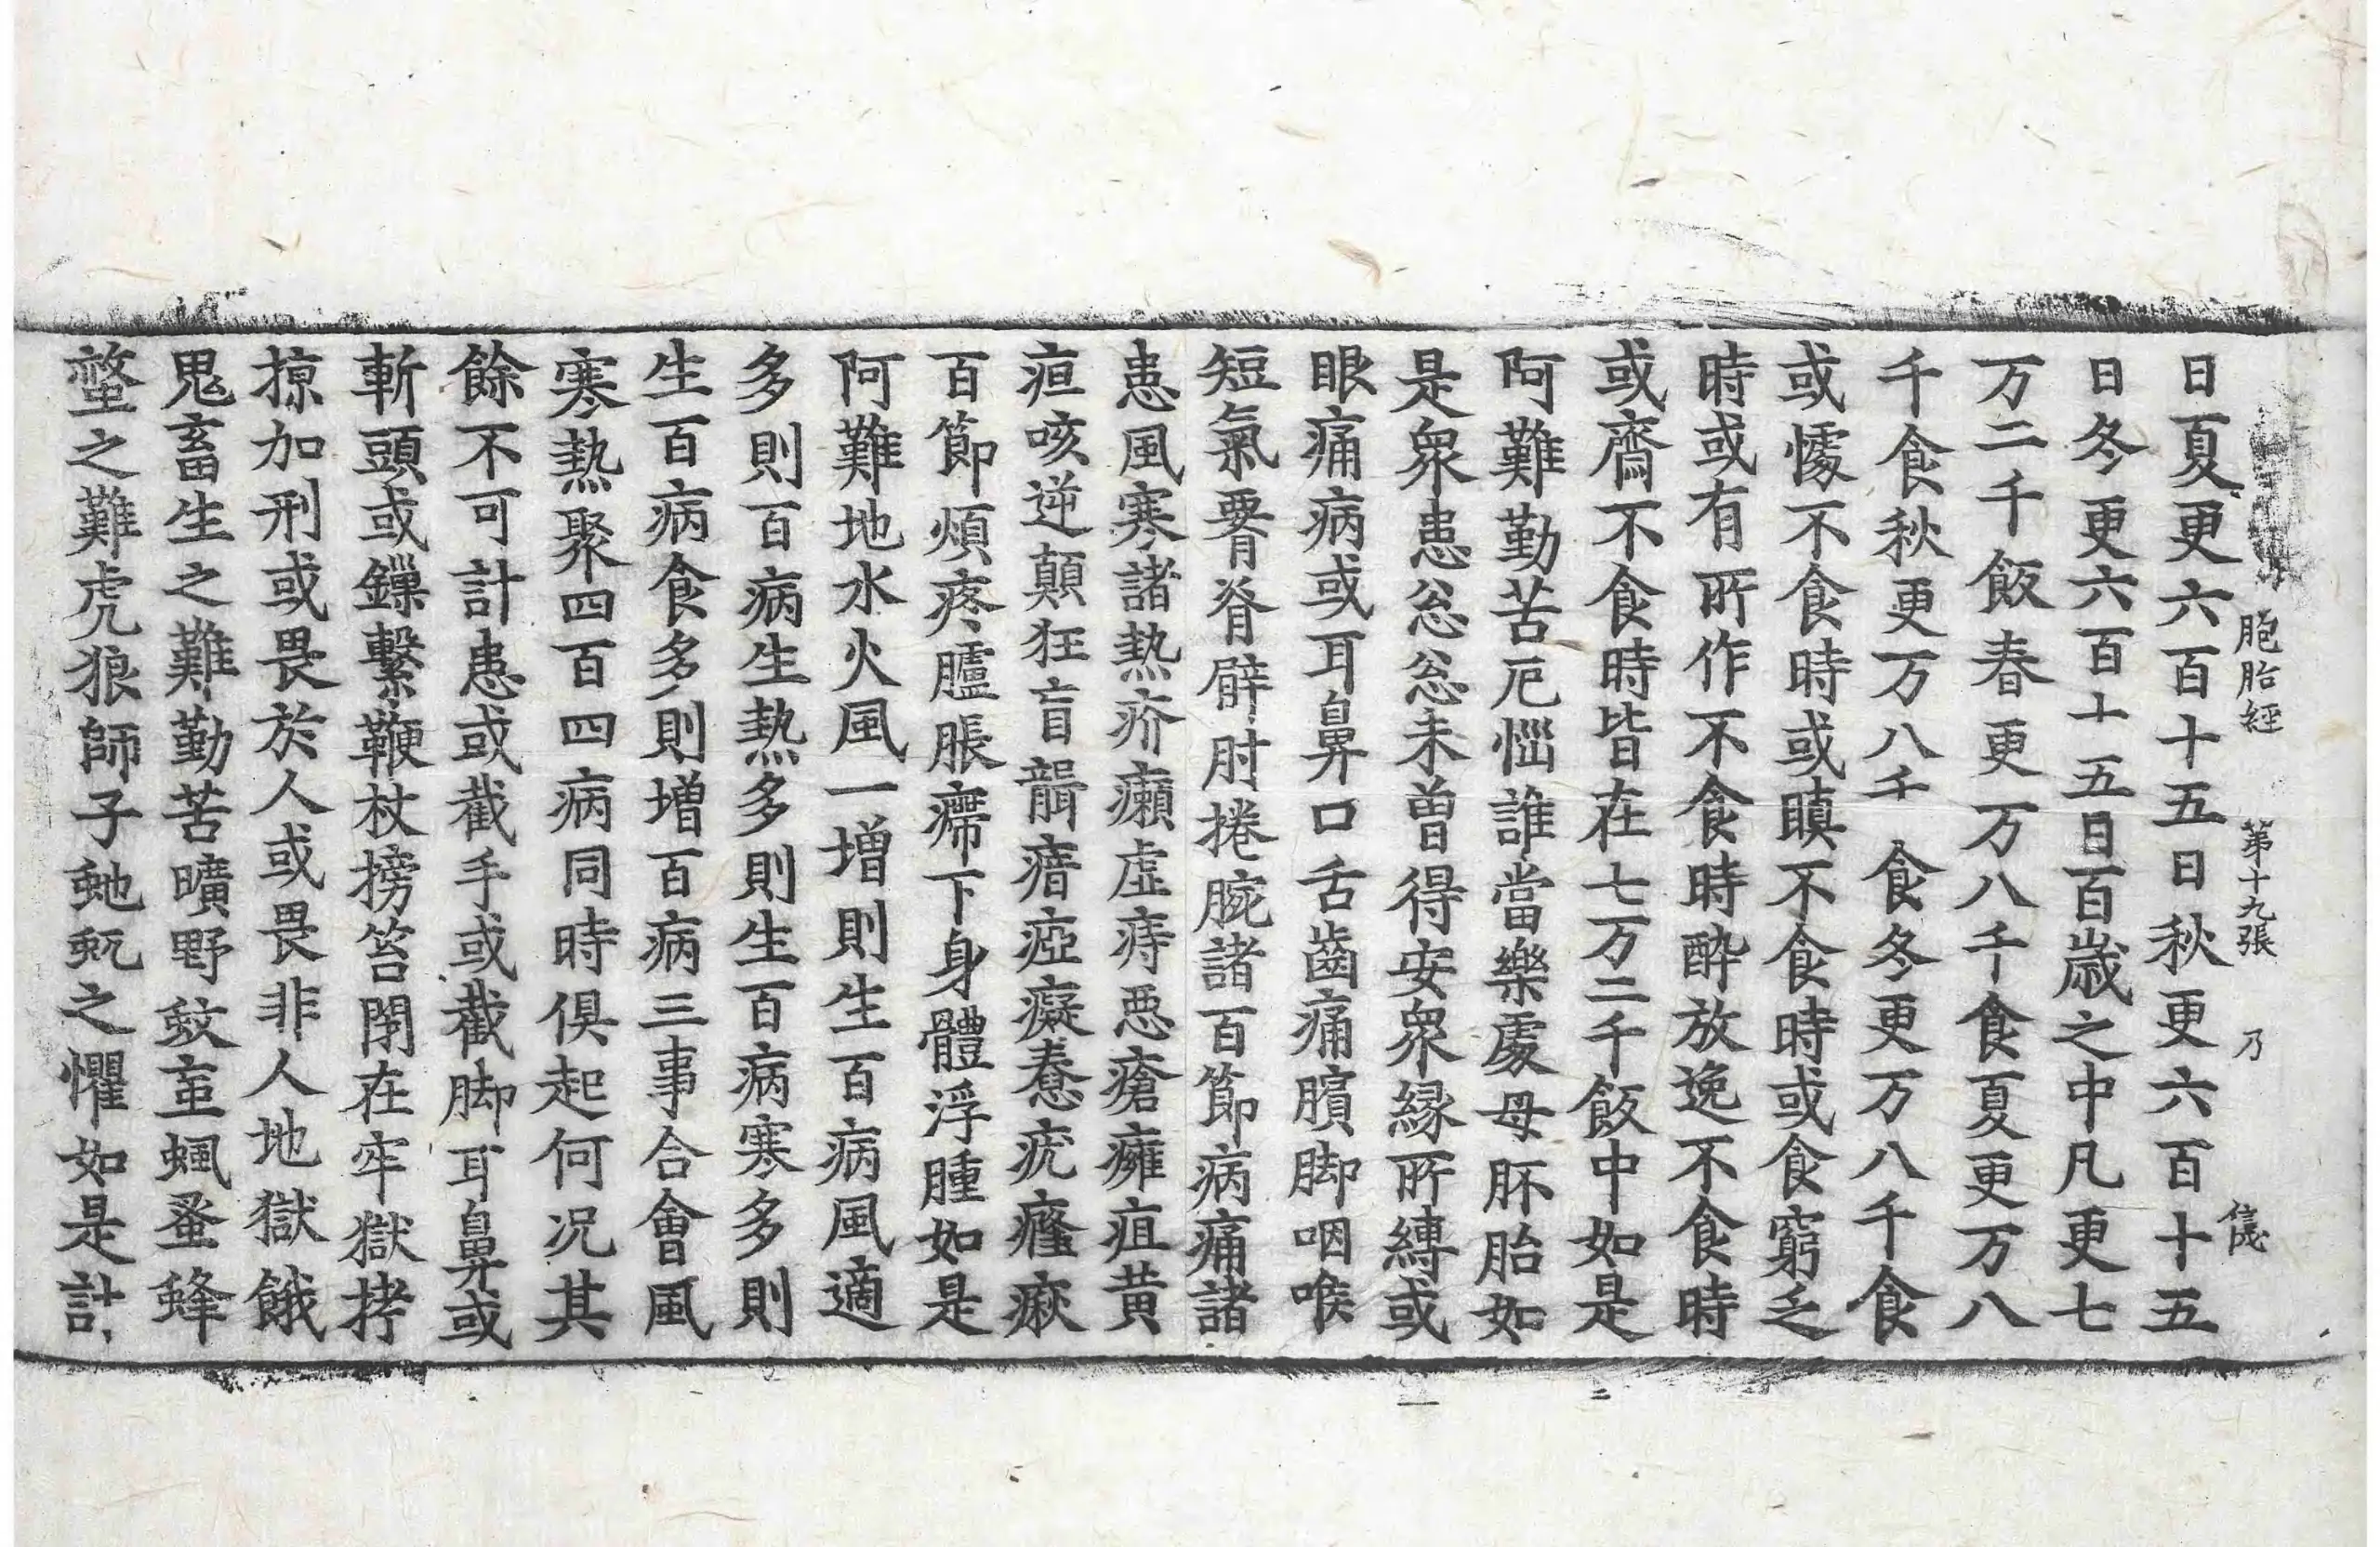 胞胎經 第十九張 乃 儀
日夏更六百十五日秋更六百十五
日冬更六百十五日百歲之中凡更七
万二千飯春更万八千食夏更万八
千食秋更万八千食冬更万八千食
或懅不食時或瞋不食時或食窮乏
時或有所作不食時醉放逸不食時
或齋不食時皆在七万二千飯中如是
阿難勤苦厄惱誰當樂處母胚胎如
是衆患忩忩未曾得安衆緣所縛或
眼痛病或耳鼻口舌齒痛臏脚咽喉
短氣䙅脊臂肘捲腕諸百節病痛諸
患風寒諸熱疥癩虛痔惡瘡癰疽黃
疸咳逆顛狂盲聾瘖瘂癡惷疣癃瘶
百節煩疼臚脹㿃下身體浮腫如是
阿難地水火風一增則生百病風適
多則百病生熱多則生百病寒多則
生百病食多則增百病三事合會風
寒熱聚四百四病同時俱起何況其
餘不可計患或截手或截脚耳鼻或
斬頭或鏁繫鞭杖搒笞閉在牢獄拷
掠加刑或畏於人或畏非人地獄餓
鬼畜生之難勤苦曠野蚊䖟䗈蚤蜂
螫之難虎狼師子虵蚖之懼如是計